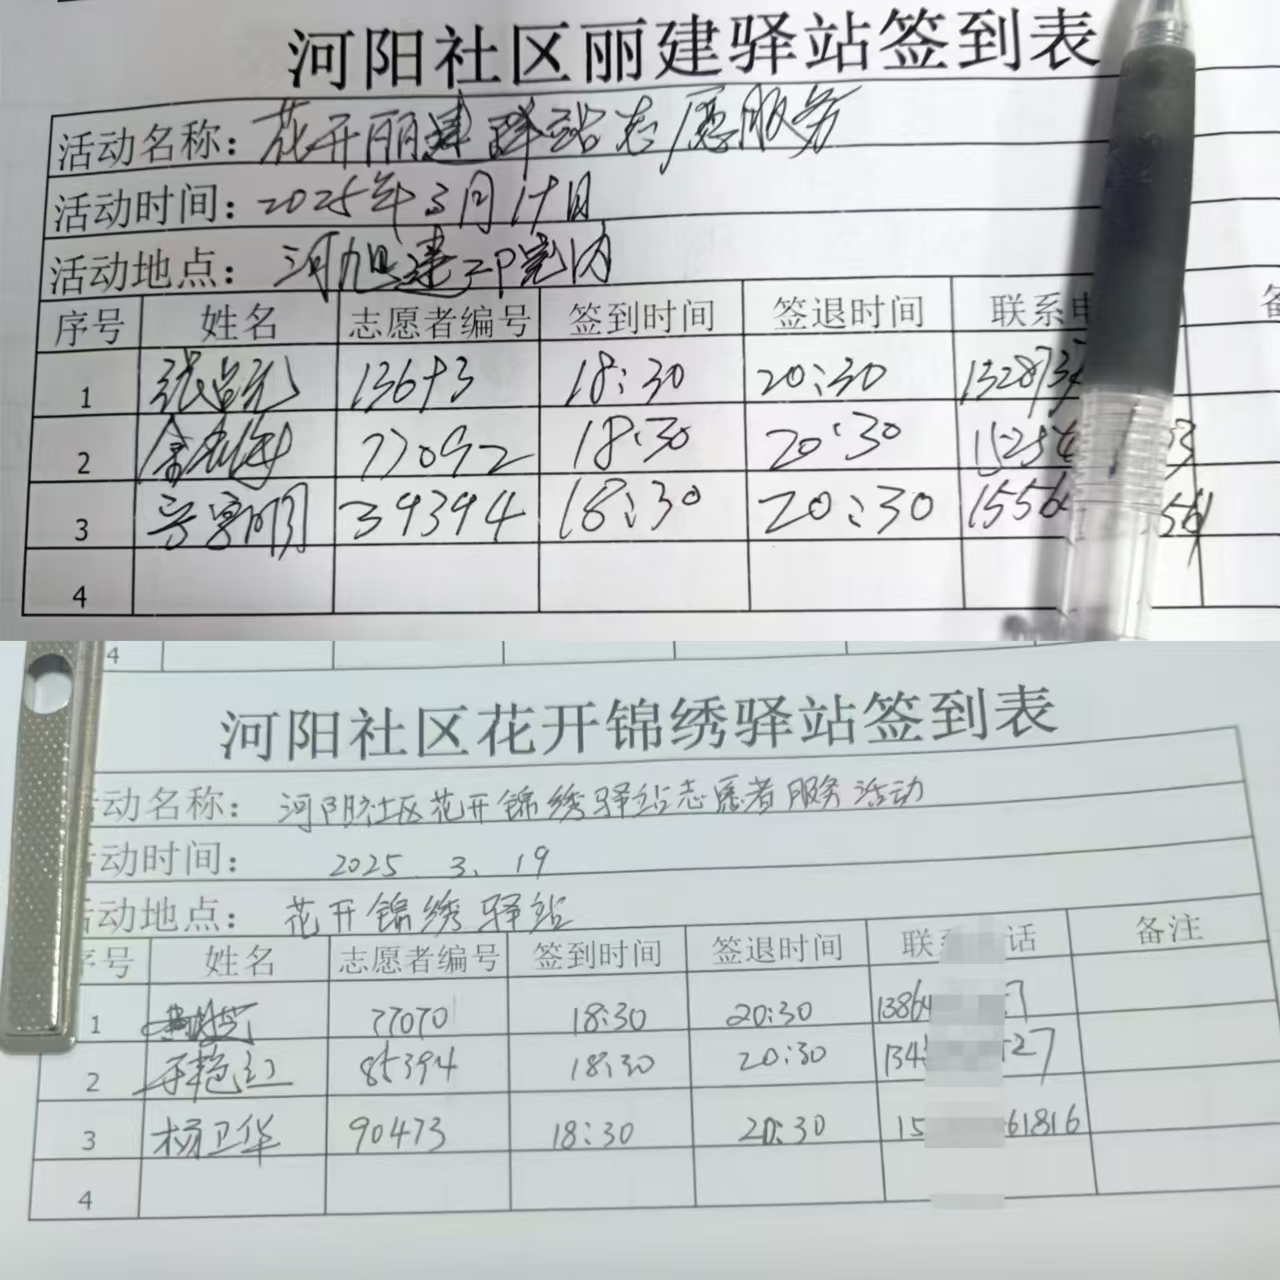 河阳社区丽建驿站签到表
活动名称：花开丽建驿站志愿服务
活动时间：2025年3月19日
活动地点：河旭建邦院内
序号 姓名 志愿者编号 签到时间 签退时间 联系电 备
1 18:30 20:30 132873
2 77092 18:30 20:30 15254 3
3 39394 18:30 20:30 1556 56
4
4
河阳社区花开锦绣驿站签到表
活动名称：河阳社区花开锦绣驿站志愿者服务活动
活动时间：2025.3.19
活动地点：花开锦绣驿站
序号 姓名 志愿者编号 签到时间 签退时间 联系 话 备注
1 77070 18:30 20:30 13864 7
2 于艳红 85394 18:30 20:30 134 527
3 杨卫华 90473 18:30 20:30 15 61816
4